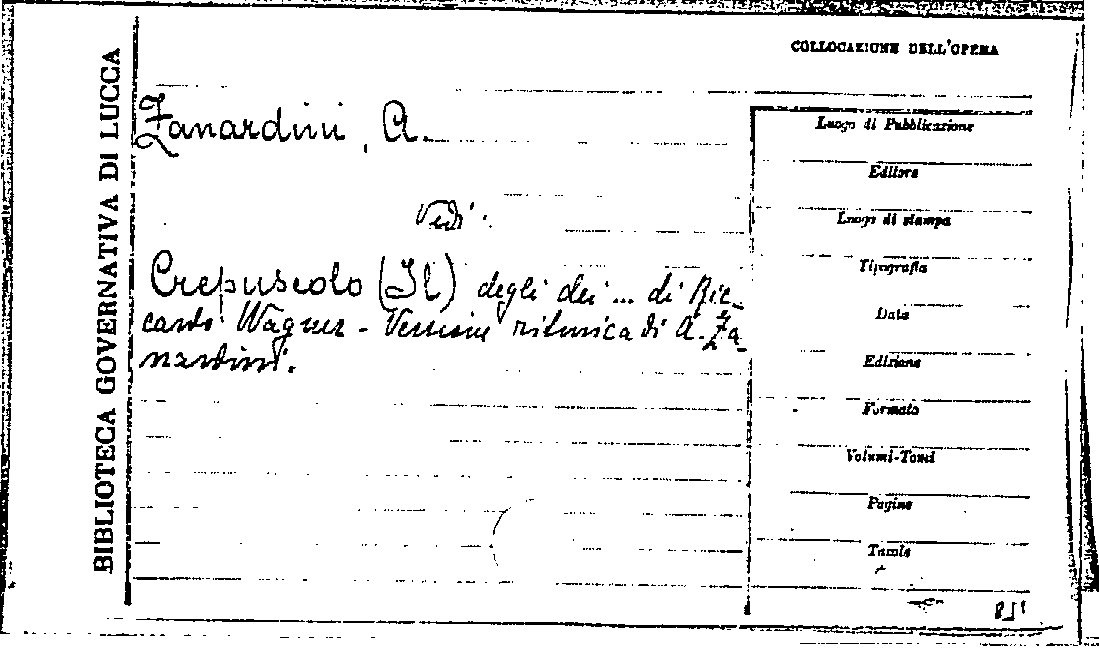 BIBLIOTECA GOVERNATIVA DI LUCCA
COLLOCAZIONE DELL'OPERA
Zanardini, A.
Vedi:
Crepuscolo (Il) degli dei ... di Ric-
cardo Wagner - Versione ritmica di A. Za-
nardini.
Luogo di Pubblicazione
Editore
Luogo di stampa
Tipografia
Data
Edizione
Formato
Volumi-Tomi
Pagine
Tavole